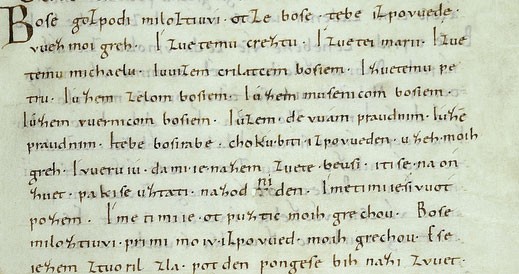 Bose gozpodi miloztiuvi · otze bose · tebe izpovuede ·
vuez moi greh · I zuetemu creztu · I zuetei marii · I zue
temu michaelu · Iuuizem crilatcem bosiem · I zuuetemu pe
tru · I uzem zelom bosiem · I uzem musenicom bosiem ·
I uzem vuernicom bosiem · I uzem · devuam praudnim · I uze
praudnim · I tebe bosi rabe · choku · biti izpovueden · uzeh · moih
greh · I vueruiu · da mi · ie · na zem zuete · beusi · iti se · na on
zuet · pakise uztati · na zod ni den · I meti mi ie siuuot
po zem · I me ti mi ie · ot puztic moih grechou · Bose
miloztiuvi · primi moiv · izpovued · moih grechou · Ese
iezem ztvoril zla · pot den pongese bih na zi zvuet ·